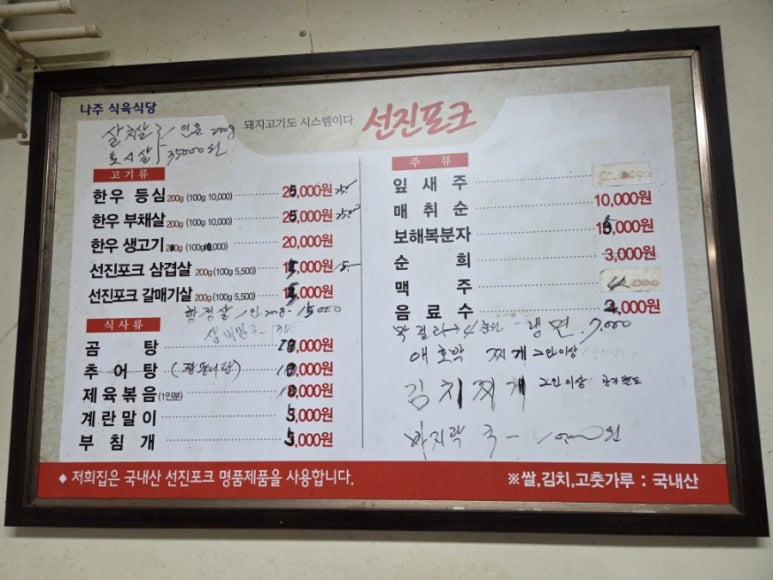 나주 식육식당
돼지고기도 시스템이다 선진포크
살치살 1인분 200g
토시살 35000원
고기류
한우 등심 200g (100g 10,000) 25,000원
한우 부채살 200g (100g 10,000) 25,000원
한우 생고기 200g (100g 10,000) 20,000원
선진포크 삼겹살 200g (100g 5,500) 15,000원
선진포크 갈매기살 200g (100g 5,500) 15,000원
항정살 15000
식사류
곰탕 10,000원
추어탕 10,000원
제육볶음 (1인분) 10,000원
계란말이 5,000원
부침개 5,000원
주류
잎새주
매취순 10,000원
보해복분자 15,000원
순희 3,000원
맥주 4,000
음료수 2,000원
막걸리→4천원 - 냉면 7,000
애호박 찌개 2인이상
김치찌개 2인이상
바지락 국 - 10000원
◆ 저희집은 국내산 선진포크 명품제품을 사용합니다.
※쌀,김치,고춧가루 : 국내산